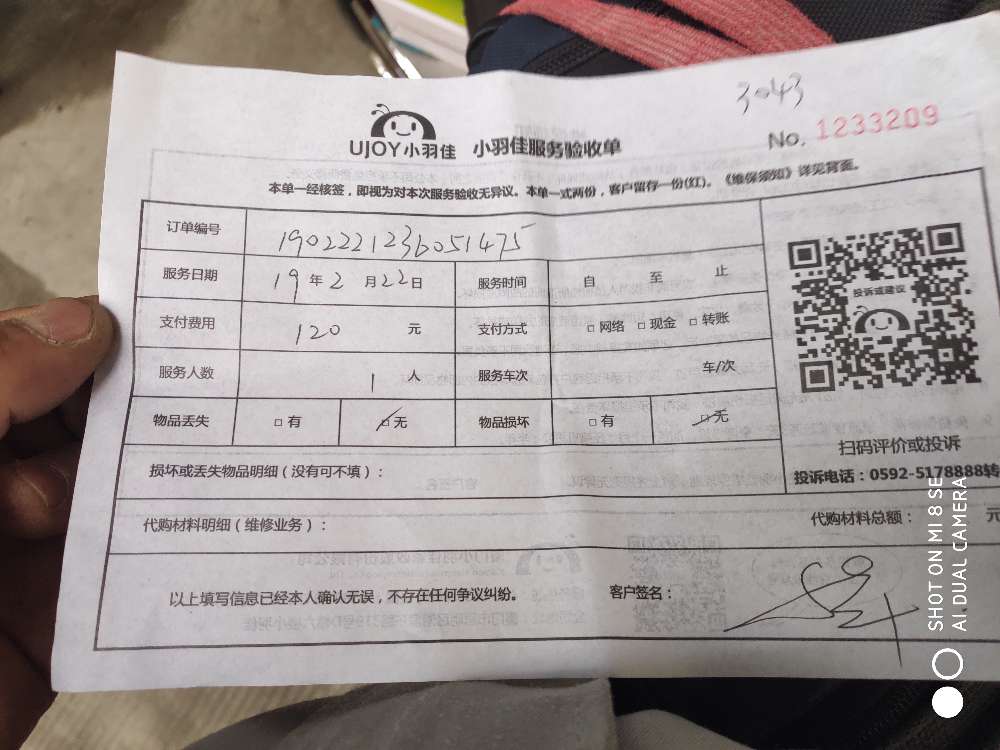 3043
UJOY小羽佳 小羽佳服务验收单 No. 1233209
本单一经核签，即视为对本次服务验收无异议。本单一式两份，客户留存一份(红)。《维保须知》详见背面。
订单编号 1902221236051475
服务日期 19年2月22日 服务时间 自 至 止
支付费用 120 元 支付方式 □网络 □现金 □转账
服务人数 1 人 服务车次 车/次
物品丢失 □有 □无 物品损坏 □有 □无
投诉或建议
扫码评价或投诉
投诉电话：0592-5178888转
损坏或丢失物品明细（没有可不填）：
代购材料明细（维修业务）： 代购材料总额： 元
以上填写信息已经本人确认无误，不存在任何争议纠纷。 客户签名：
SHOT ON MI 8 SE
AI DUAL CAMERA